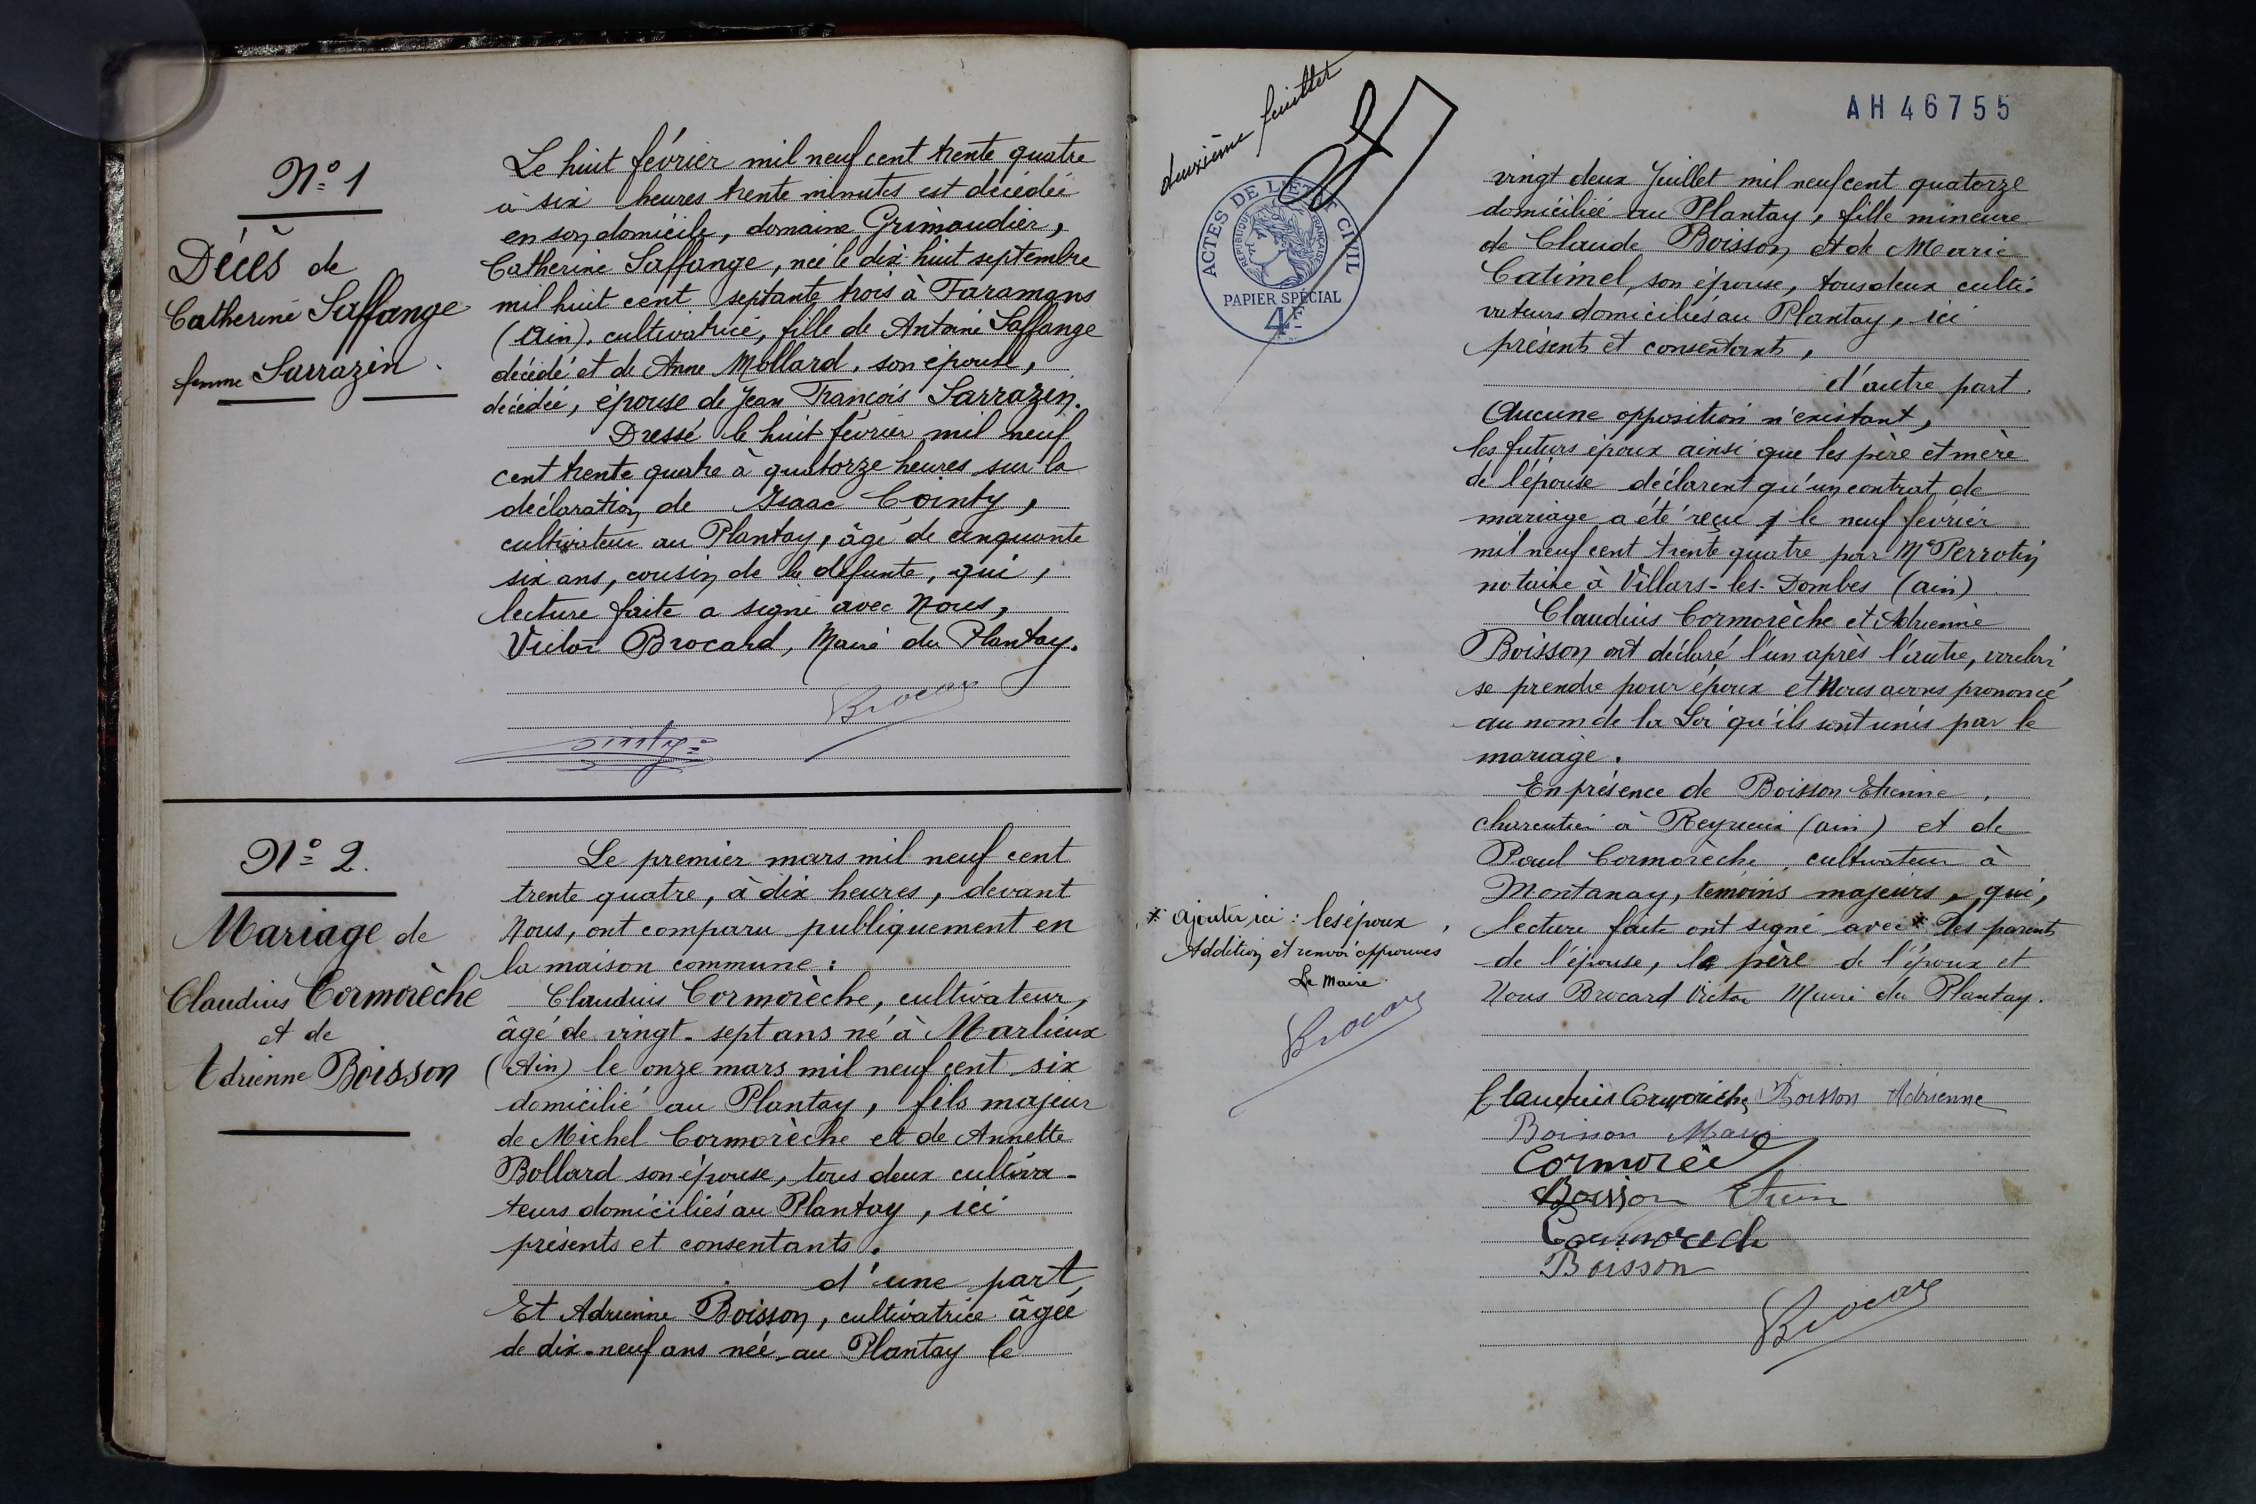 N° 1
Décès de
Catherine Saffange
femme Sarrazin.
Le huit février mil neuf cent trente quatre
à six heures trente minutes est décédée
en son domicile, domaine Grimaudier,
Catherine Saffange, née le dix-huit septembre
mil huit cent septante trois à Faramans
(Ain), cultivatrice, fille de Antoine Saffange
décédé et de Anne Mollard, son épouse,
décédée, épouse de Jean François Sarrazin.
Dressé le huit février mil neuf
cent trente quatre à quatorze heures sur la
déclaration de Isaac Cointy,
cultivateur au Plantay, âgé de cinquante
six ans, cousin de la défunte, qui,
lecture faite a signé avec Nous,
Victor Brocard, Maire du Plantay.
Brocard
N° 2.
Mariage de
Claudius Cormorèche
et de
Adrienne Boisson
Le premier mars mil neuf cent
trente quatre, à dix heures, devant
Nous, ont comparu publiquement en
la maison commune :
Claudius Cormorèche, cultivateur,
âgé de vingt-sept ans né à Marlieux
(Ain) le onze mars mil neuf cent six
domicilié au Plantay, fils majeur
de Michel Cormorèche et de Annette
Bollard son épouse, tous deux cultiva-
teurs domiciliés au Plantay, ici
présents et consentants.
d'une part,
Et Adrienne Boisson, cultivatrice âgée
de dix-neuf ans née au Plantay le
deuxième feuillet
ACTES DE L'ETAT CIVIL
REPUBLIQUE FRANÇAISE
PAPIER SPECIAL
4F
AH46755
vingt deux Juillet mil neuf cent quatorze
domiciliée au Plantay, fille mineure
de Claude Boisson et de Marie
Catimel, son épouse, tous deux culti-
vateurs domiciliés au Plantay, ici
présents et consentants,
d'autre part.
Aucune opposition n'existant,
les futurs époux ainsi que les père et mère
de l'épouse déclarent qu'un contrat de
mariage a été reçu le neuf février
mil neuf cent trente quatre par Me Perrotin
notaire à Villars-les-Dombes (ain)
Claudius Cormorèche et Adrienne
Boisson ont déclaré l'un après l'autre, vouloir
se prendre pour époux et Nous avons prononcé
au nom de la Loi qu'ils sont unis par le
mariage.
En présence de Boisson Etienne,
charcutier à Reyrieux (ain) et de
Paul Cormorèche, cultivateur à
Montanay, témoins majeurs, qui,
lecture faite ont signé avec * les parents
de l'épouse, le père de l'époux et
Nous Brocard Victor Maire du Plantay.
* Ajouter ici : les époux,
Addition et renvoi approuvés
Le Maire.
Brocard
Claudius Cormorèche Boisson Adrienne
Boisson Marie
Cormorèche
Boisson Etienne
Cormorèche
Boisson
Brocard